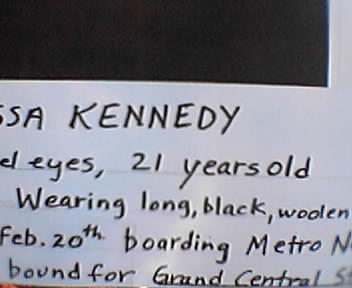 SSA KENNEDY
el eyes, 21 years old
Wearing long, black, woolen
Feb. 20th boarding Metro N
bound for Grand Central St